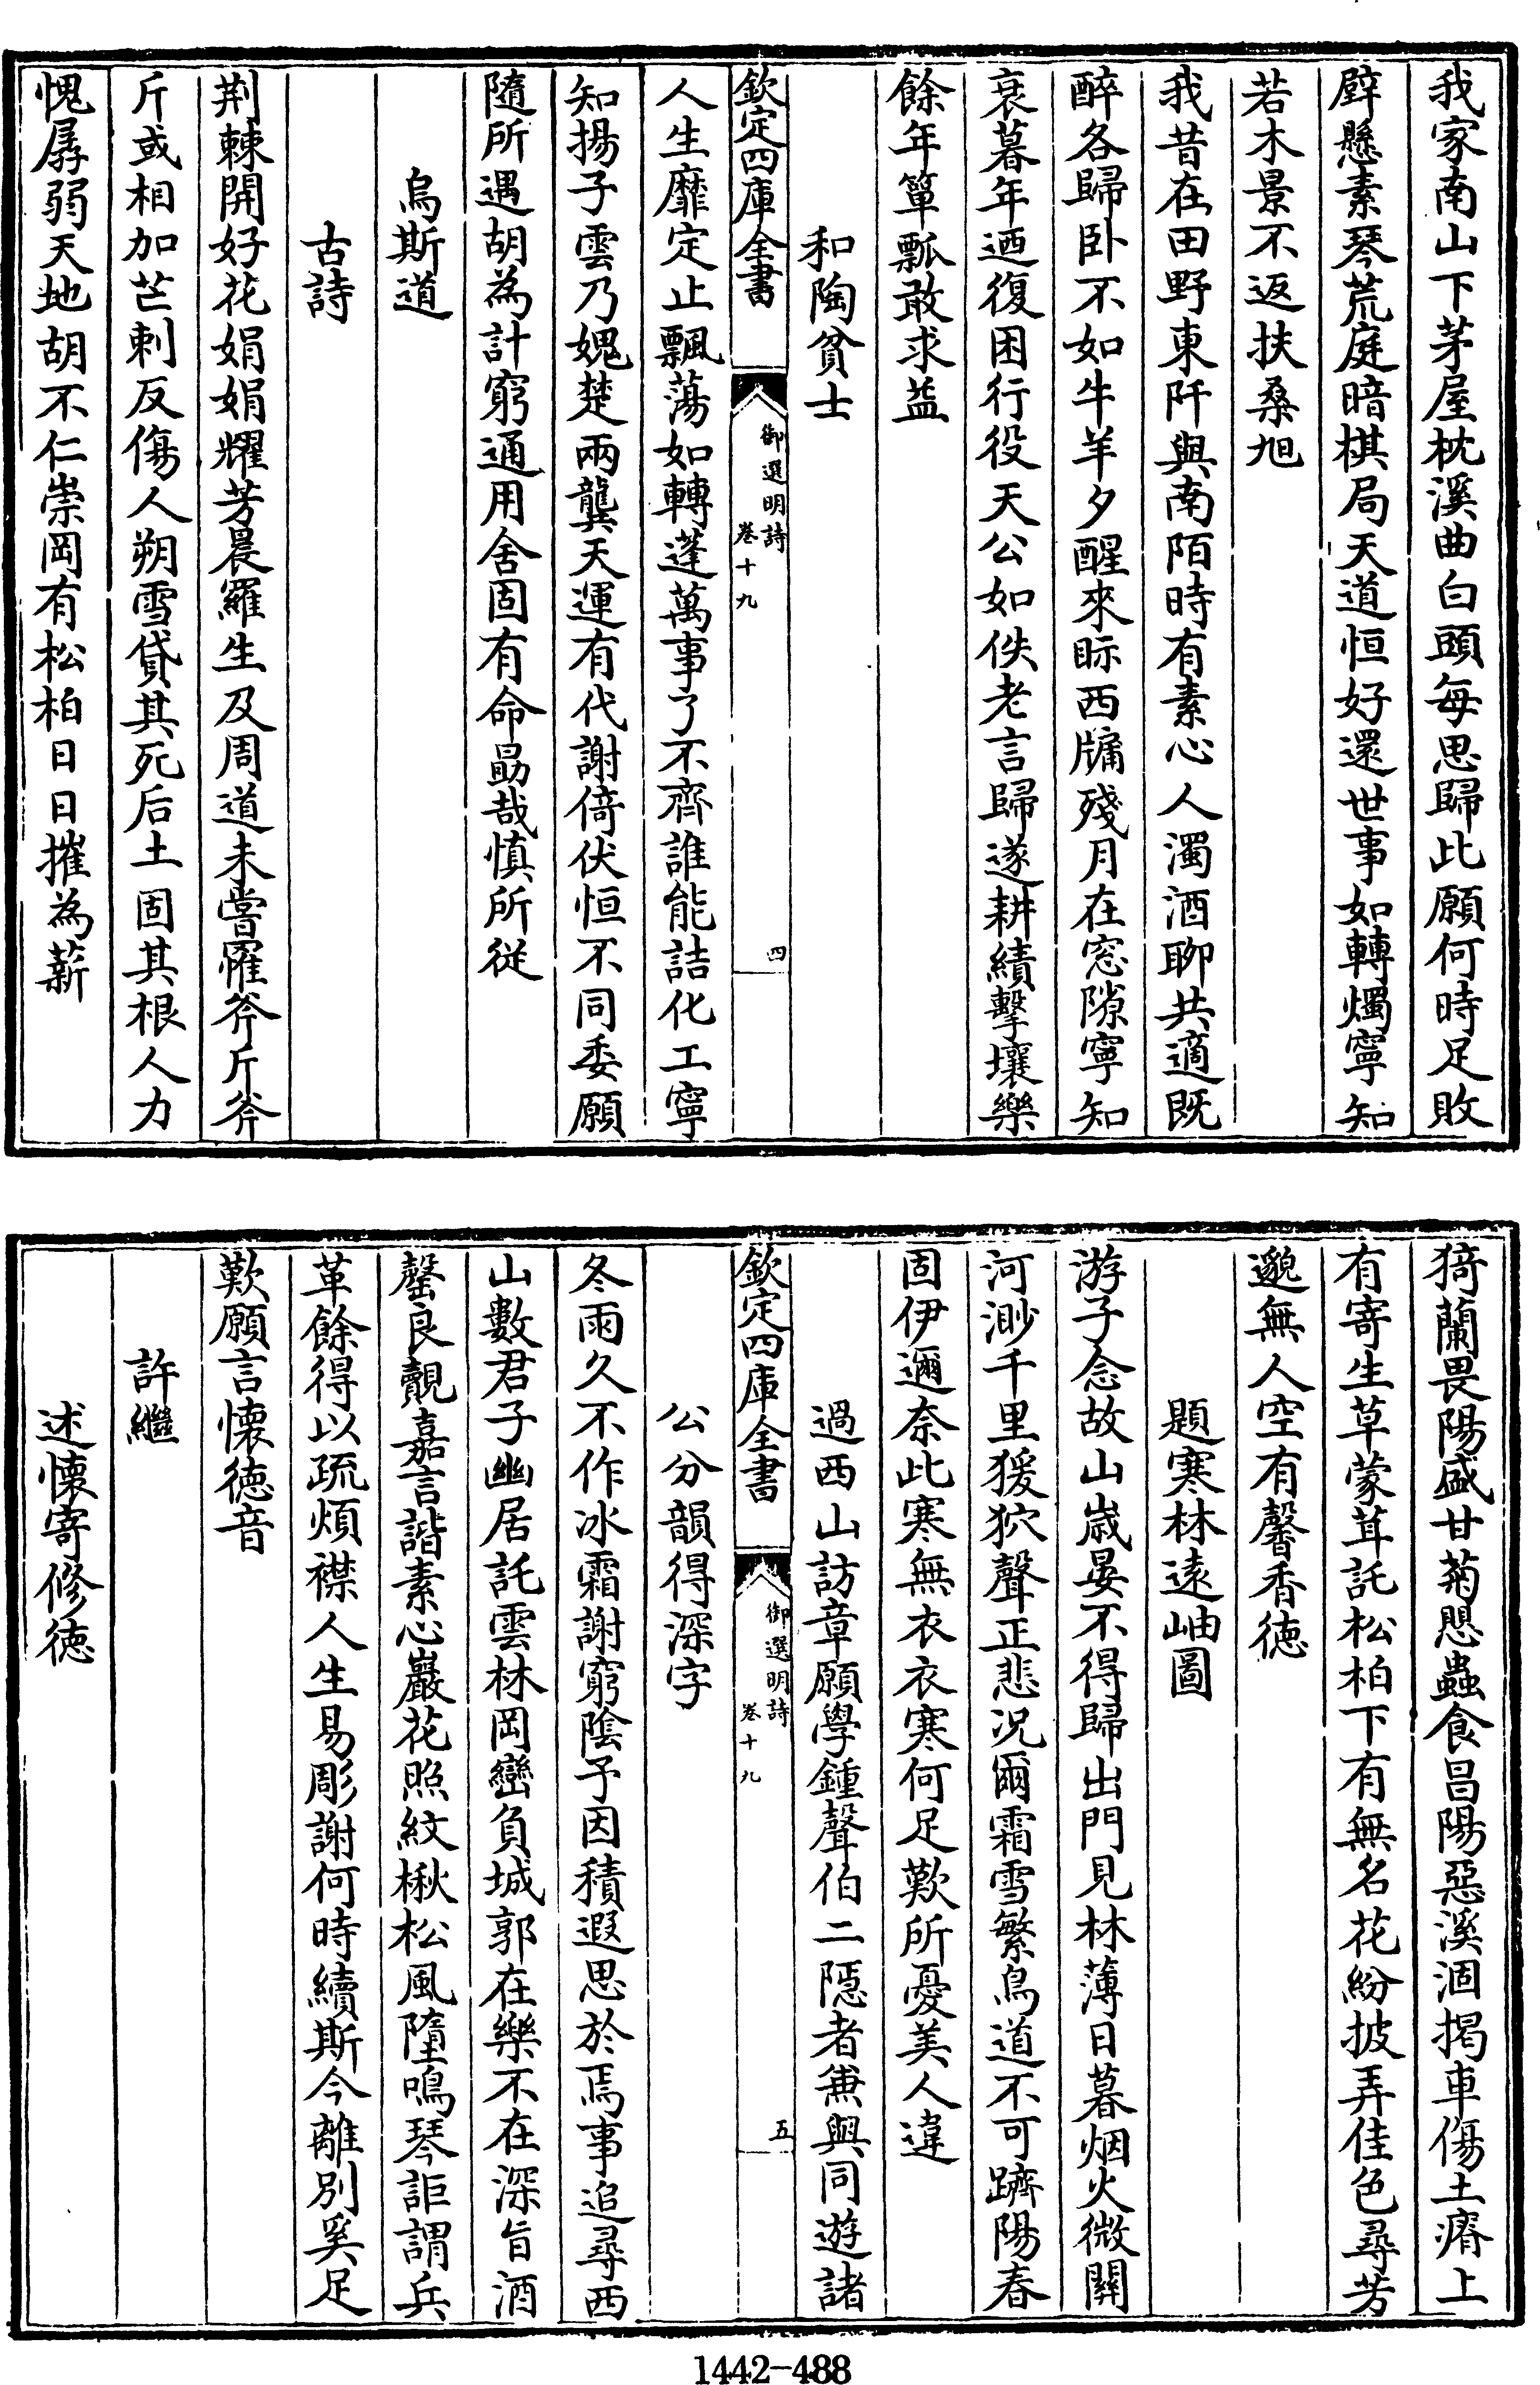 我家南山下茅屋枕溪曲白頭每思歸此願何時足敗
壁懸素琴荒庭暗棋局天道恒好還世事如轉燭寧知
若木景不返扶桑旭
我昔在田野東阡與南陌時有素心人濁酒聊共適既
醉各歸卧不如牛羊夕醒來眎西牖殘月在窓隙寧知
衰暮年迺復困行役天公如佚老言歸遂耕績擊壤樂
餘年簞瓢敢求益
和陶貧士
欽定四庫全書
御選明詩
卷十九
四
人生靡定止飄蕩如轉蓬萬事了不齊誰能詰化工寧
知揚子雲乃媿楚兩龔天運有代謝倚伏恒不同委願
隨所遇胡為計窮通用舍固有命勗哉慎所從
烏斯道
古詩
荆棘開好花娟娟耀芳晨羅生及周道未嘗罹斧斤斧
斤或相加芒刺反傷人朔雪貸其死后土固其根人力
愧孱弱天地胡不仁崇岡有松柏日日摧為薪
猗蘭畏陽盛甘菊愳蟲食昌陽惡溪涸揭車傷土瘠上
有寄生草蒙茸託松柏下有無名花紛披弄佳色尋芳
邈無人空有馨香德
題寒林遠岫圖
游子念故山歲晏不得歸出門見林薄日暮烟火微關
河渺千里猨狖聲正悲况爾霜雪繁鳥道不可躋陽春
固伊邇奈此寒無衣衣寒何足歎所憂美人違
過西山訪章願學鍾聲伯二隠者兼與同遊諸
公分韻得深字
欽定四庫全書
御選明詩
卷十九
五
冬雨久不作冰霜謝窮陰予因積遐思於焉事追尋西
山數君子幽居託雲林岡巒負城郭在樂不在深旨酒
罄良覿嘉言諧素心巖花照紋楸松風墮鳴琴詎謂兵
革餘得以疏煩襟人生易彫謝何時續斯今離別奚足
歎願言懷德音
許繼
述懷寄修德
1442-488